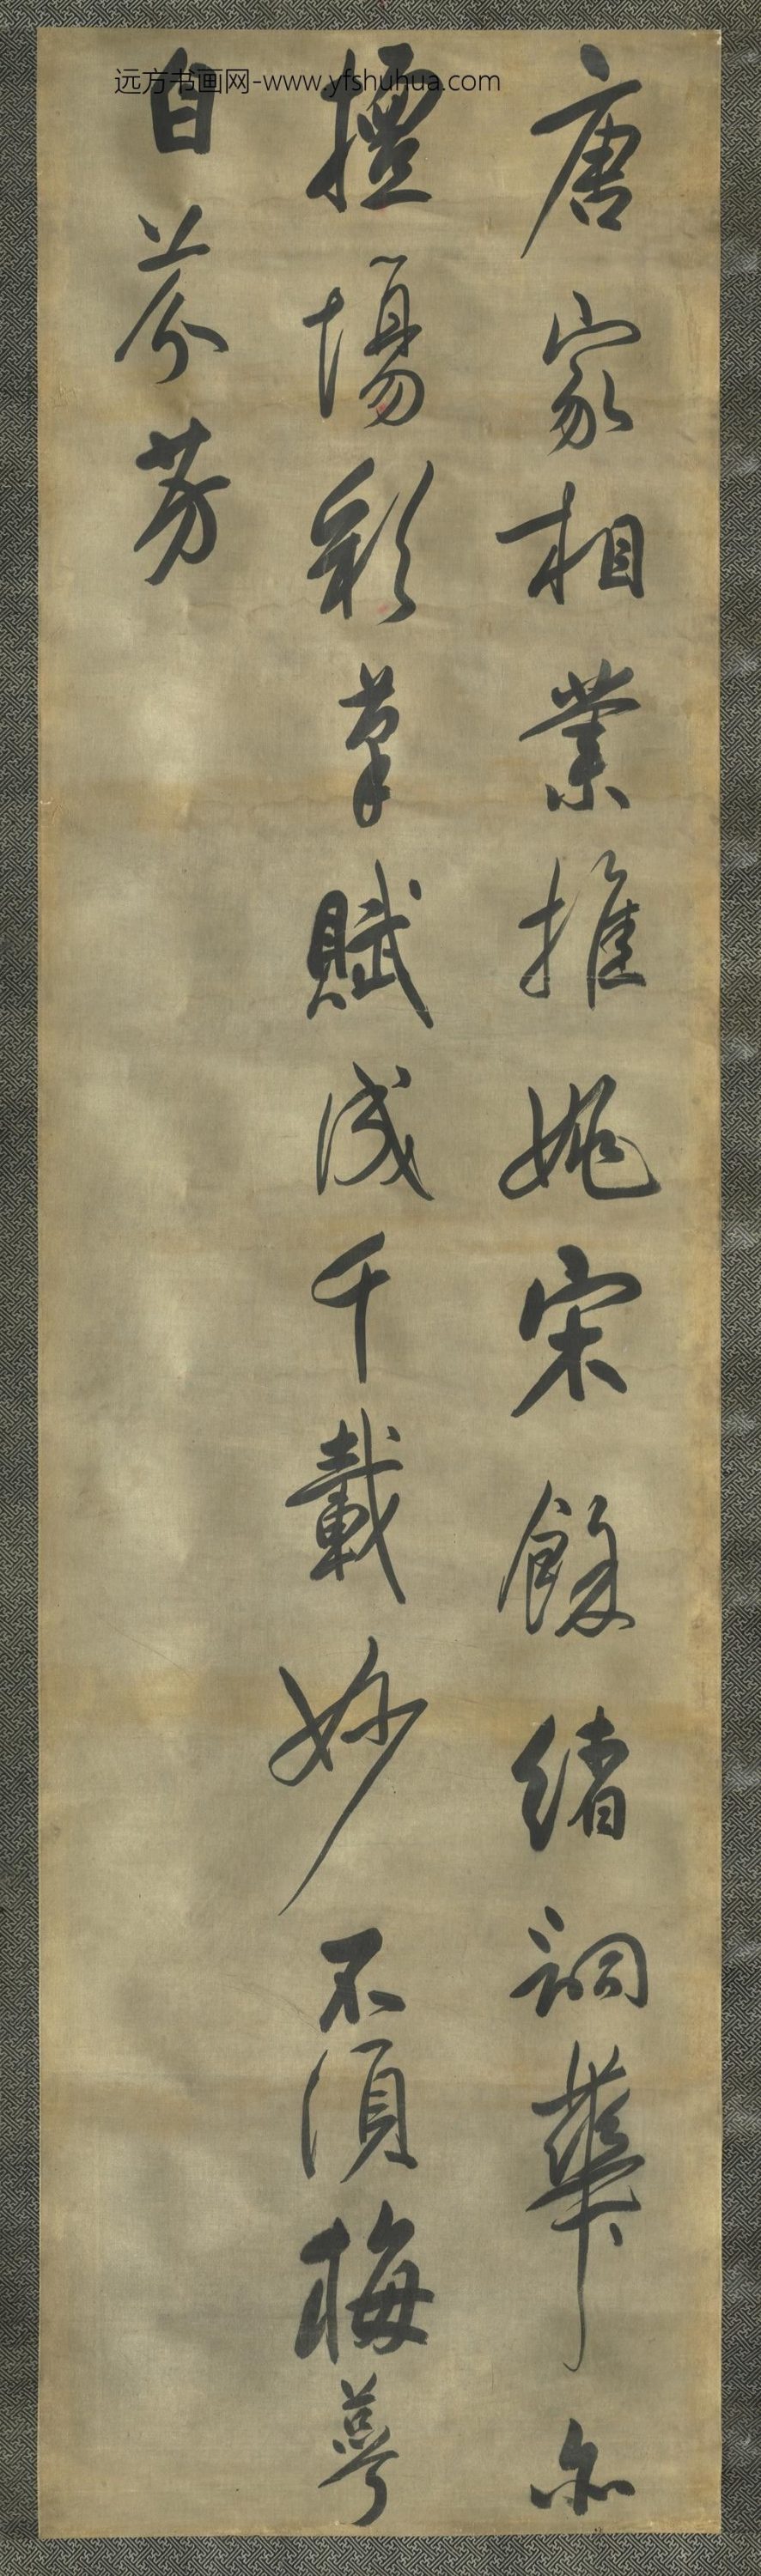 唐家相業推姚宋餘緒詞華亦
擅場彩筆賦成千載妙不須梅萼
自芬芳
远方书画网-www.yfshuhua.com